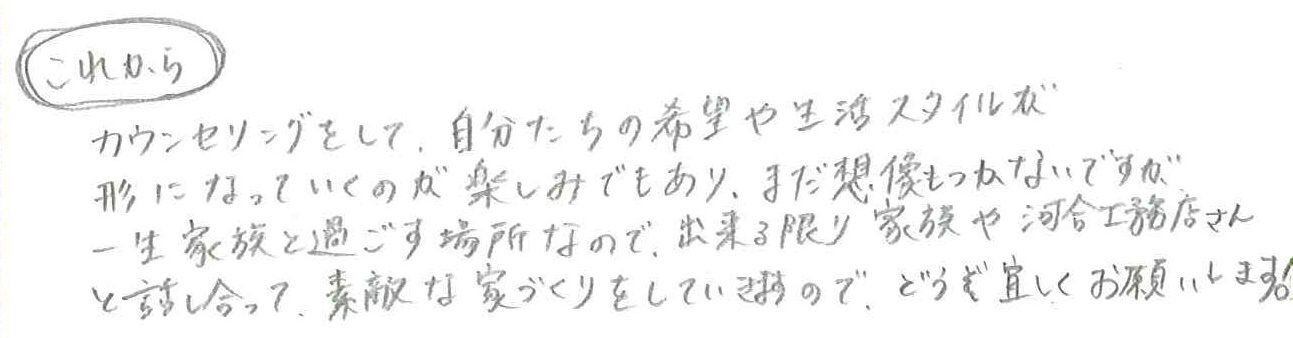 これから
カウンセリングをして、自分たちの希望や生活スタイルが
形になっていくのが楽しみでもあり、まだ想像もつかないですが、
一生家族と過ごす場所なので、出来る限り家族や河合工務店さん
と話し合って、素敵な家づくりをしていきますので、どうぞ宜しくお願いします